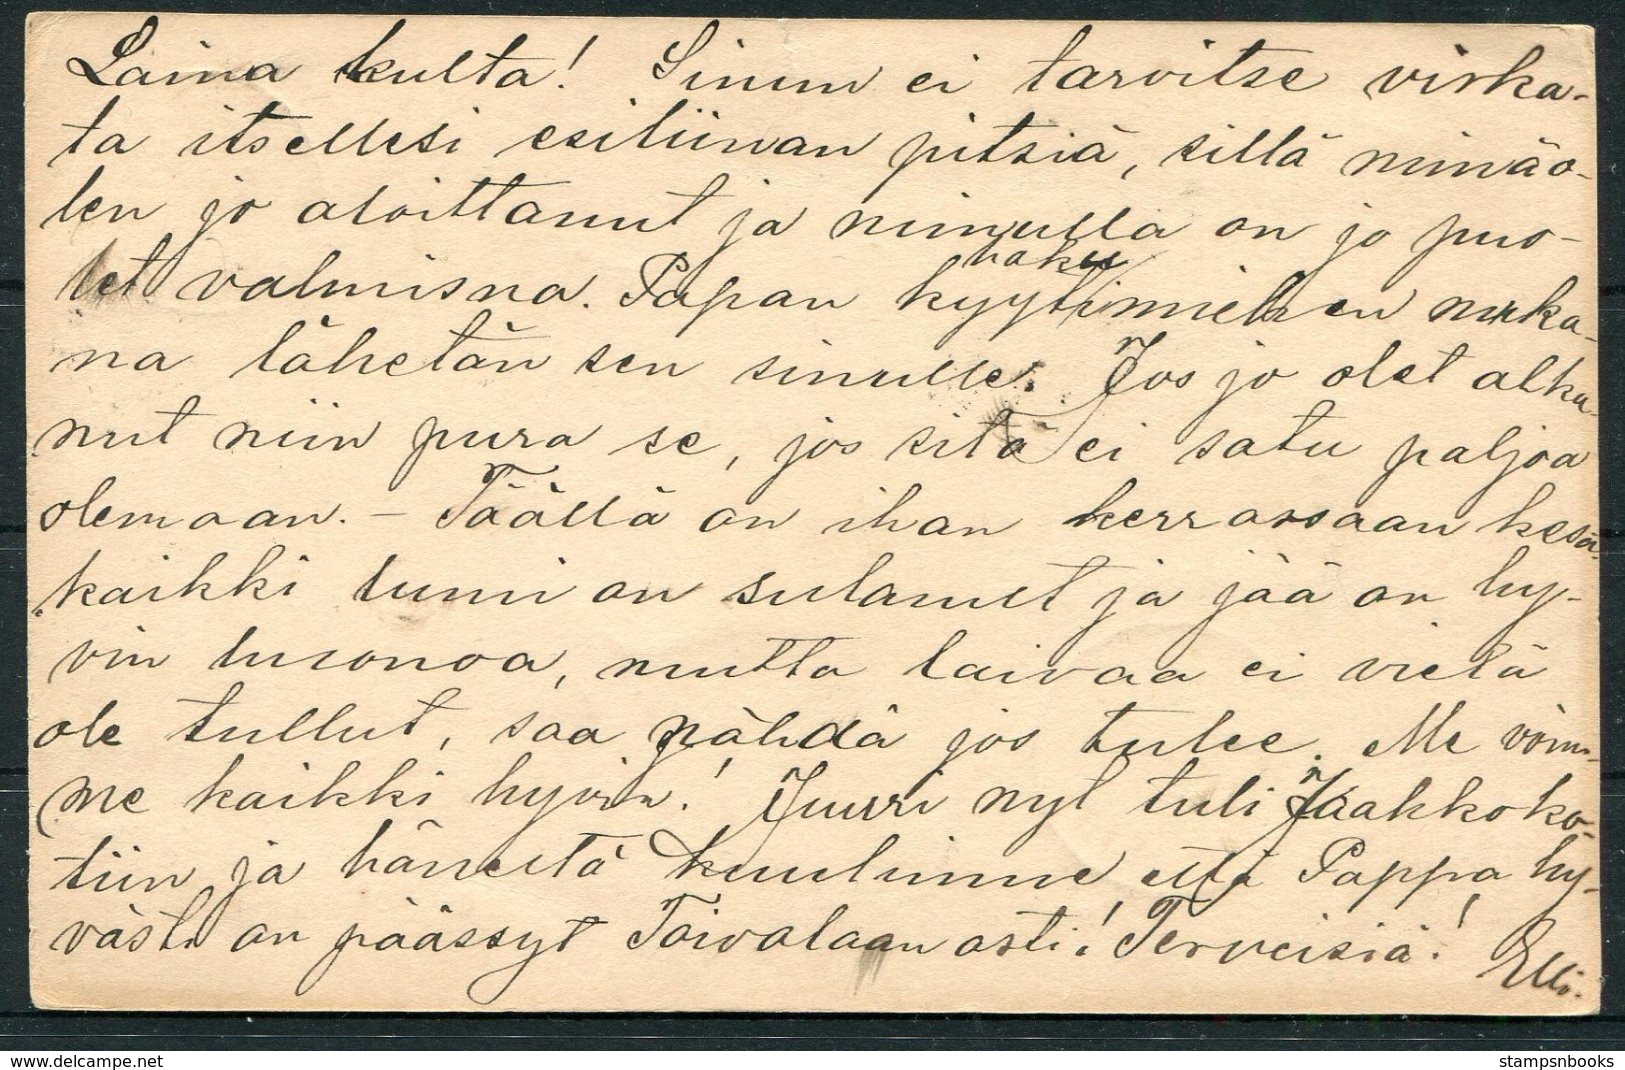 Laina kulta! Sinun ei tarvitse virka-
ta itsellesi esiliinan pitsiä, sillä minä o-
len jo aloittanut ja minulla on jo puo-
let valmisna. Papan haku
kyytimiehen muka-
na lähetän sen sinulle. Jos jo olet alka-
nut niin pura se, jos sitä ei satu paljoa
olemaan. – Täällä on ihan kerrassaan kesä
kaikki lumi on sulanut ja jää on hy-
vin huonoa, mutta laivaa ei vielä
ole tullut, saa nähdä jos tulee. Me voim-
me kaikki hyvin! Juuri nyt tuli Jaakko ko-
tiin ja häneltä kuulimme että Pappa hy-
västi on päässyt Toivolaan asti! Terveisiä!
Elli.
stampsnbooks
delcampe.net